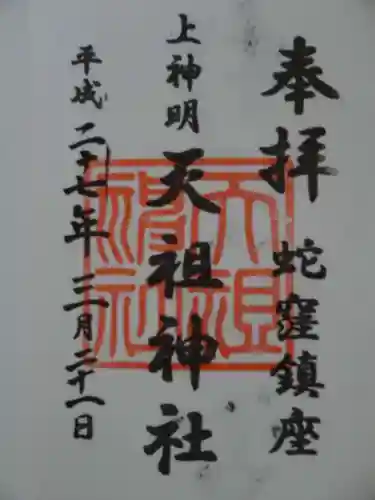 奉拝
蛇窪鎮座
上神明
天祖神社
平成二十七年三月二十一日
天祖神社